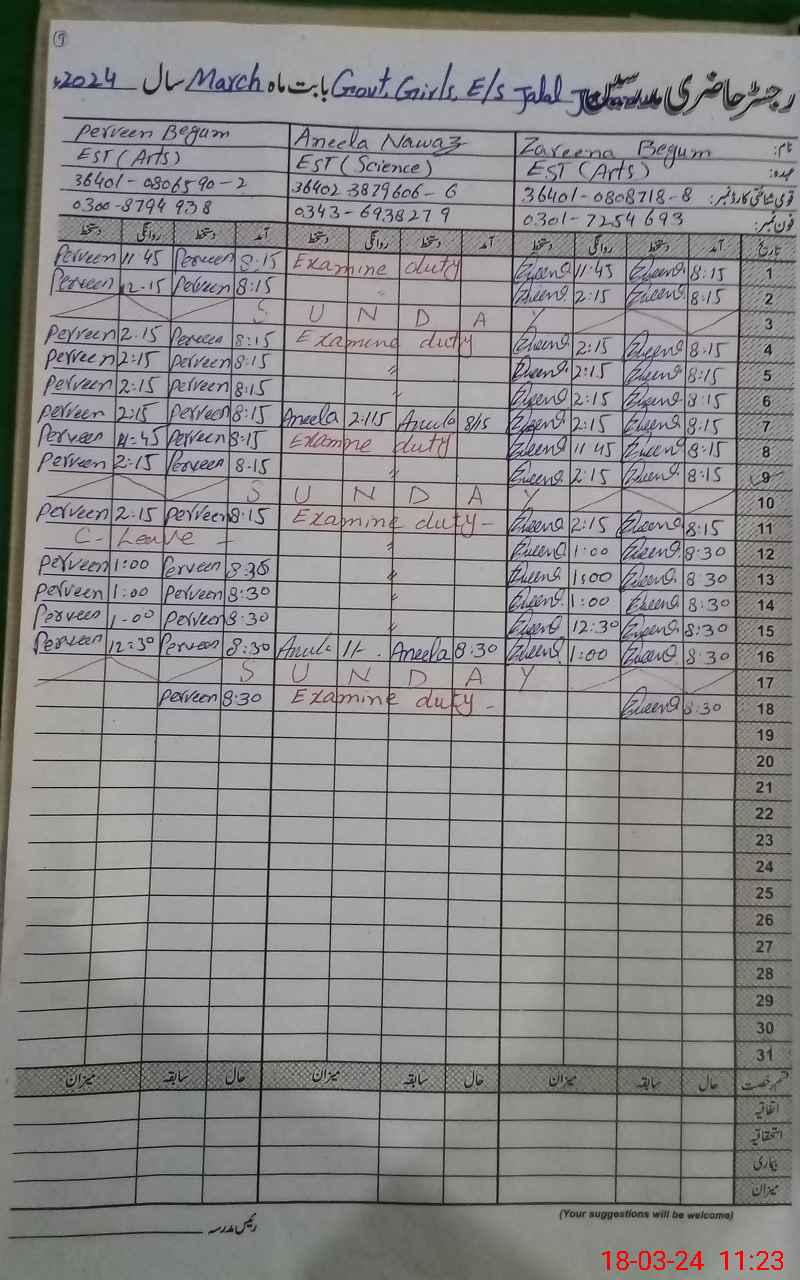 9
رجسٹر حاضری مدرسین Govt. Girls. E/s Jalal بابت ماہ March سال 2024ء
نام: Zareena Begum Aneela Nawaz Perveen Begum
عہدہ: EST (Arts) EST (Science) EST (Arts)
قومی شناختی کارڈ نمبر: 36401-0808718-8 36402 3879606-6 36401-0806590-2
فون نمبر: 0301-7254693 0343-6938279 0300-8794938
تاریخ آمد دستخط روانگی دستخط آمد دستخط روانگی دستخط آمد دستخط روانگی دستخط
Perveen 11 45 Perveen 8:15 Examine duty 11:45 8:15 1
Perveen 12-15 Perveen 8:15 " 2:15 8:15 2
S U N D A Y 3
Perveen 2:15 Perveen 8:15 Examine duty 2:15 8:15 4
Perveen 2:15 Perveen 8:15 " 2:15 8:15 5
Perveen 2:15 Perveen 8:15 " 2:15 8:15 6
Perveen 2:15 Perveen 8:15 Aneela 2:15 Aneela 8/15 2:15 8:15 7
Perveen 11:45 Perveen 8:15 Examine duty 11 45 8:15 8
Perveen 2:15 Perveen 8:15 " 2:15 8:15 9
S U N D A Y 10
Perveen 2:15 Perveen 8:15 Examine duty - 2:15 8:15 11
C. Leave - " 1:00 8:30 12
Perveen 1:00 Perveen 8:30 " 1:00 8 30 13
Perveen 1:00 Perveen 8:30 " 1:00 8:30 14
Perveen 1-00 Perveen 8:30 " 12:30 8:30 15
Perveen 12:30 Perveen 8:30 Aneela 8:30 1:00 8:30 16
S U N D A Y 17
Perveen 8:30 Examine duty - 8:30 18
19
20
21
22
23
24
25
26
27
28
29
30
31
قسم رخصت حال سابقہ میزان حال سابقہ میزان حال سابقہ میزان
اتفاقیہ
استحقاقیہ
بیماری
میزان
(Your suggestions will be welcome)
رئیس مدرسہ
18-03-24 11:23